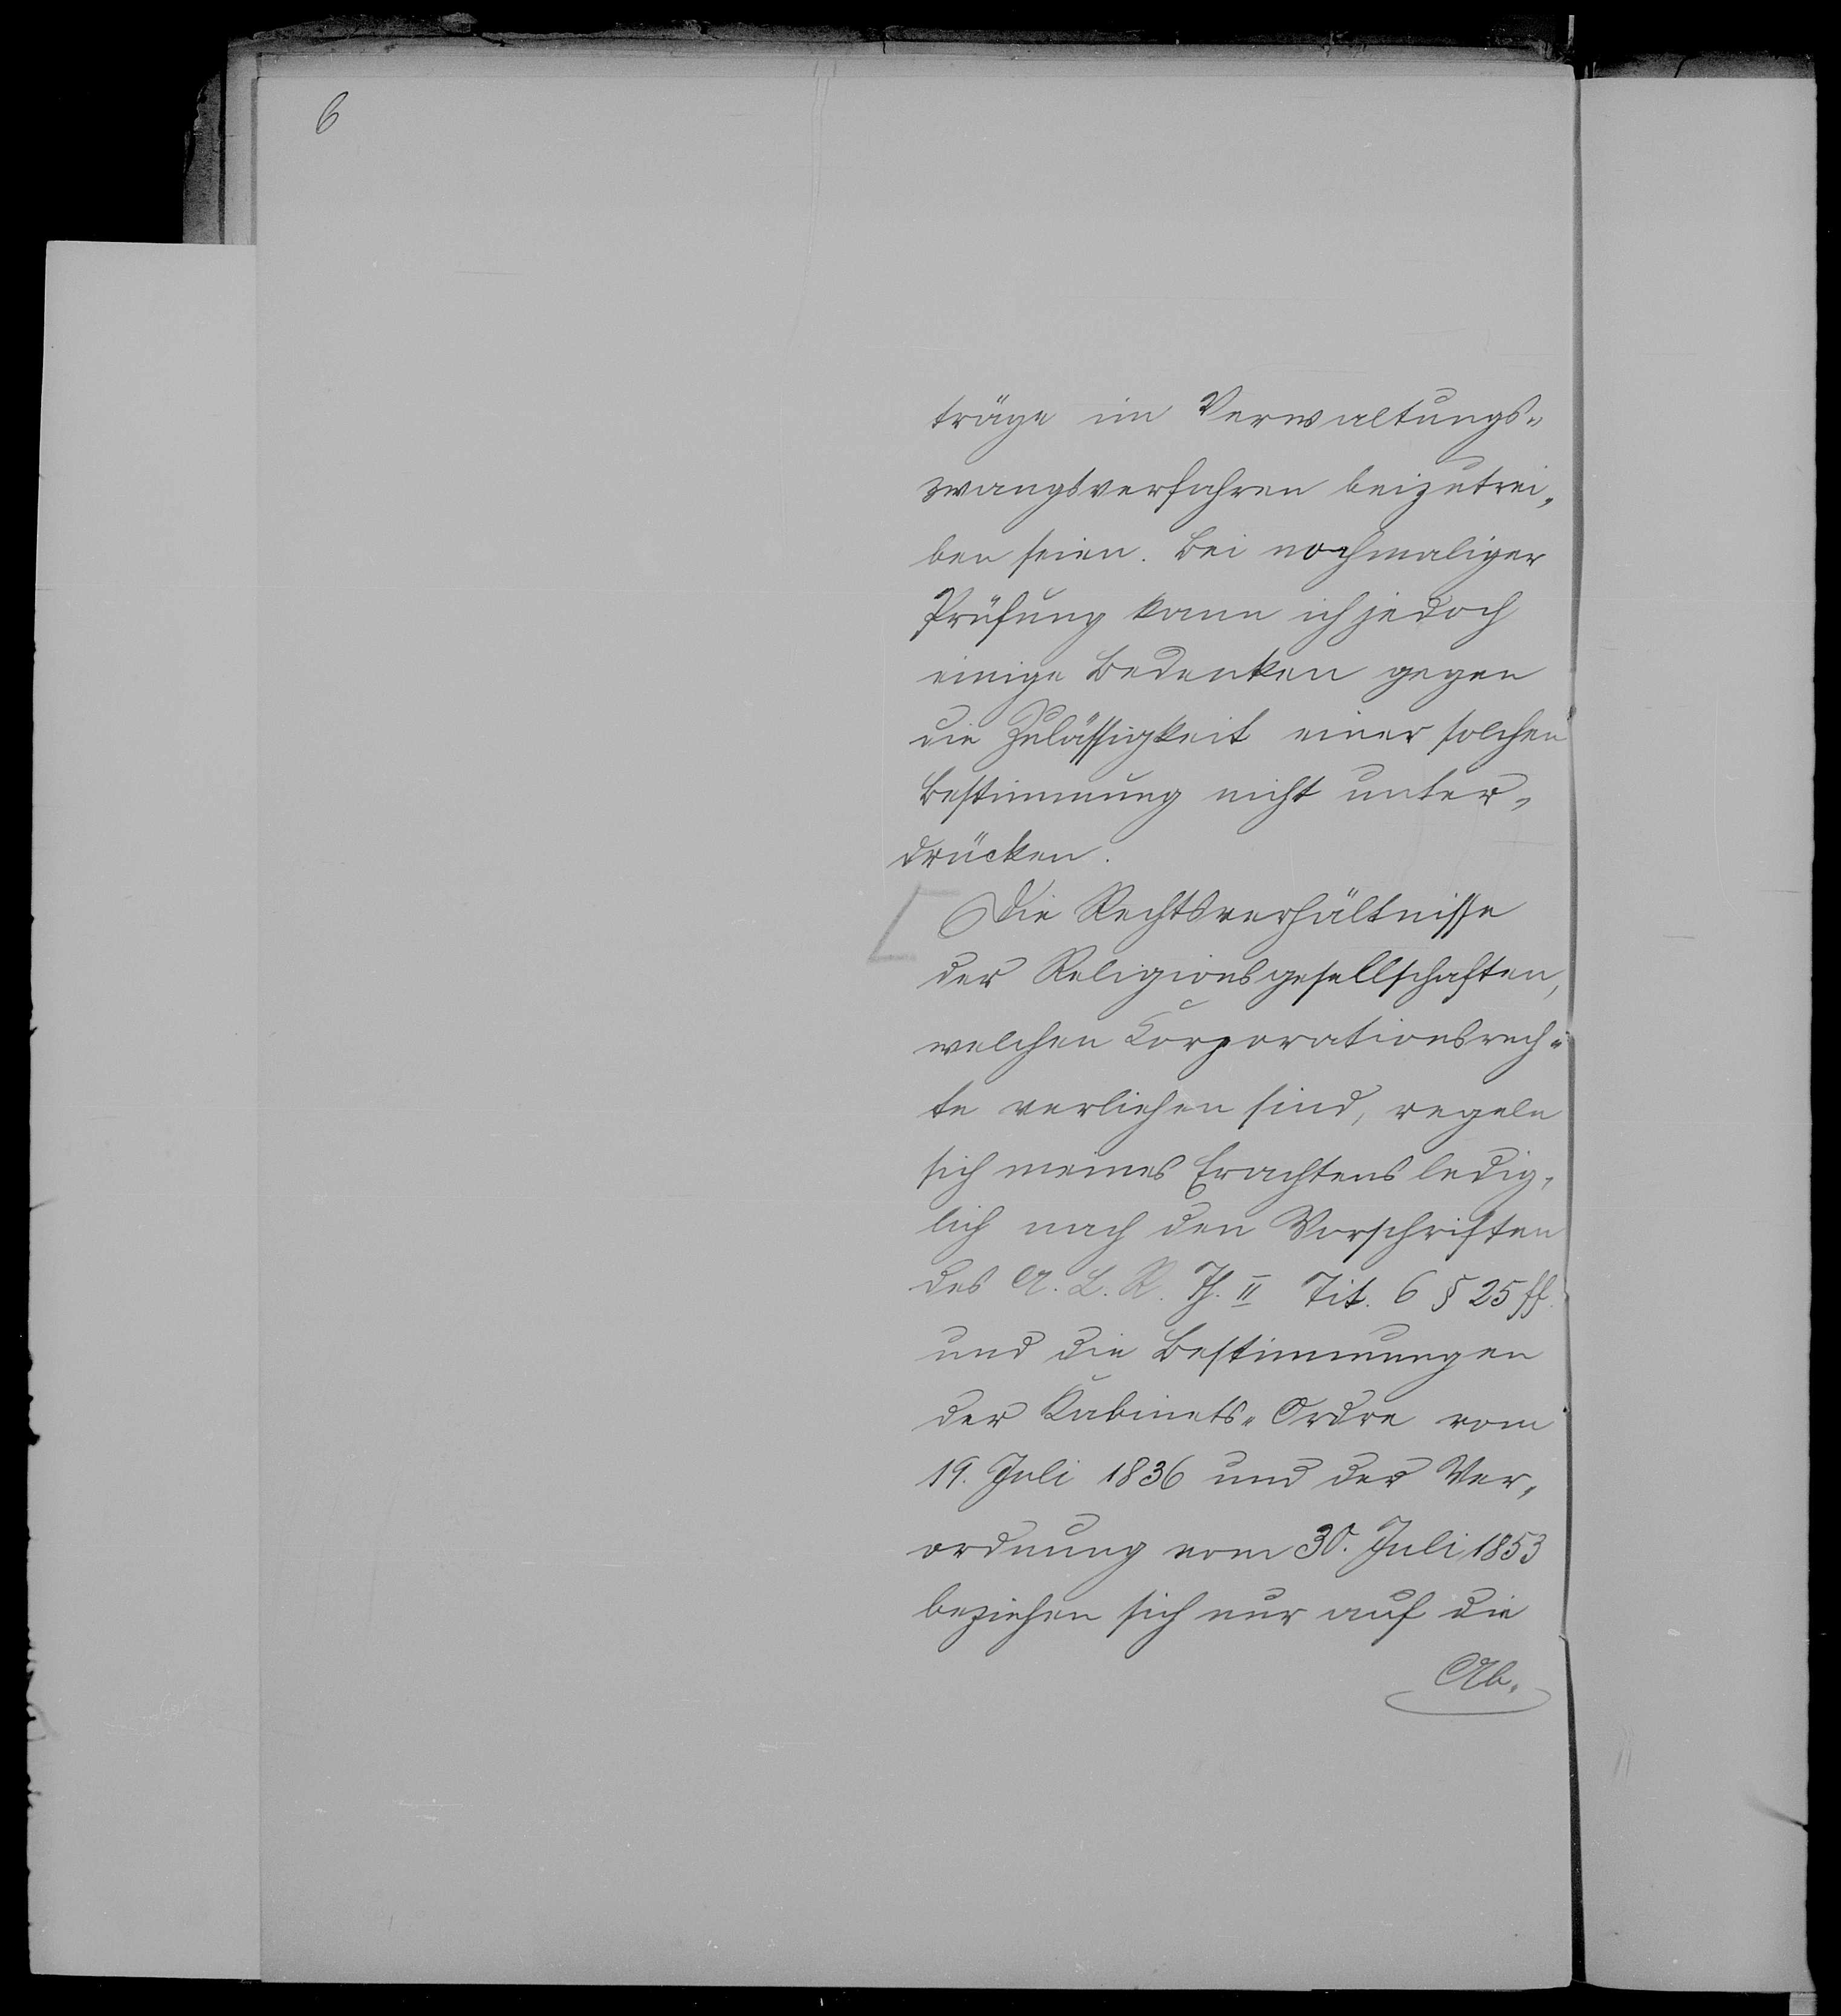 6
träge im Verwaltungs-
zwangsverfahren beizutrei-
ben seien. Bei nochmaliger
Prüfung kann ich jedoch
einige Bedenken gegen
die Zulässigkeit einer solchen
Bestimmung nicht unter-
drücken.
Die Rechtsverhältnisse
der Religionsgesellschaften,
welchen Korporationsrech-
te verliehen sind, regeln
sich meines Erachtens ledig-
lich nach den Vorschriften
des A. L. R. Th. II Tit. 6 § 25 ff.
und die Bestimmungen
der Kabinets-Ordre vom
19. Juli 1836 und der Ver-
ordnung vom 30. Juli 1853
beziehen sich nur auf die
Ab-